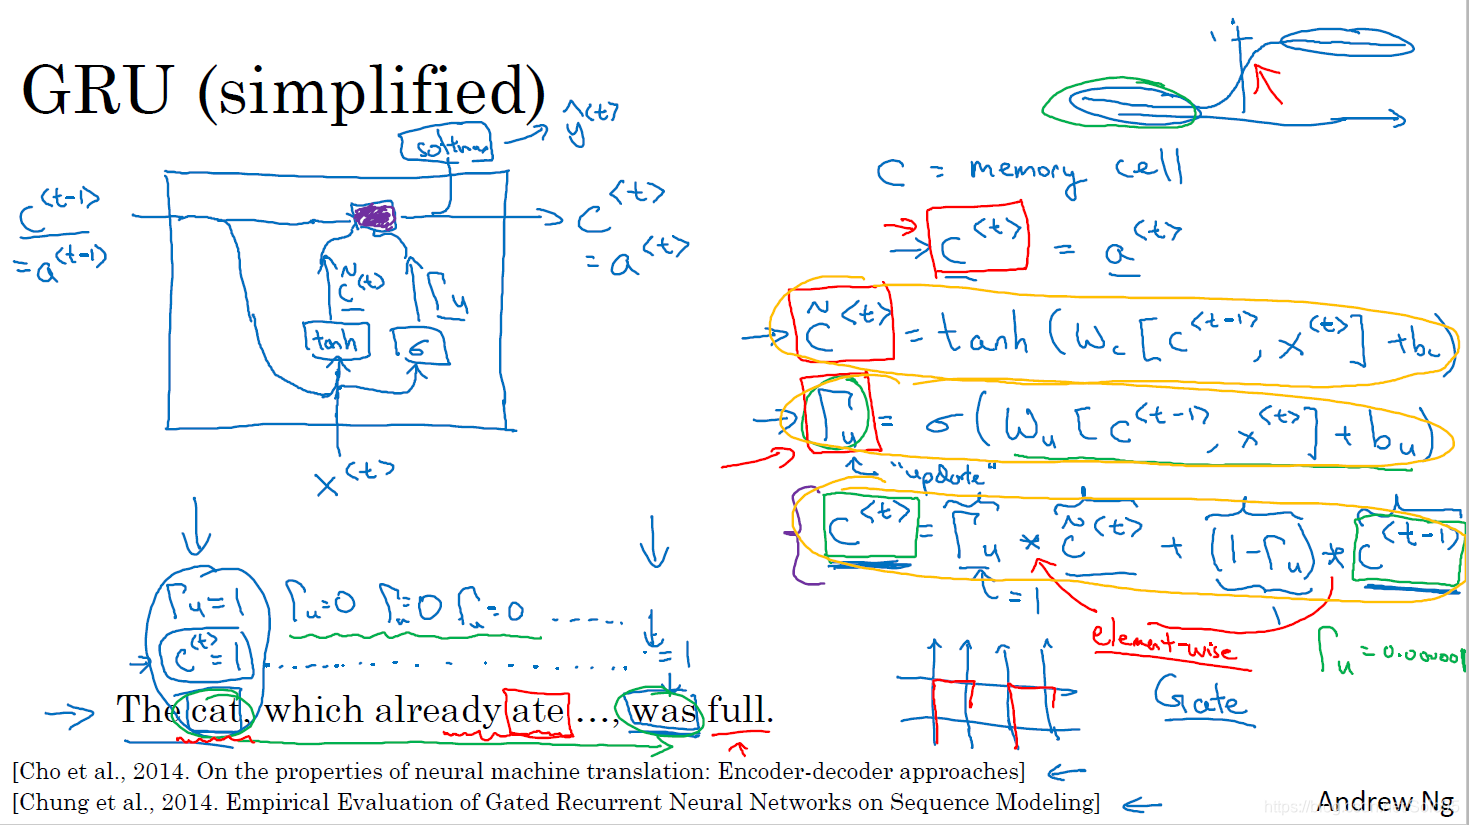 GRU (simplified)
softmax
ŷ<t>
c<t-1>
= a<t-1>
c<t>
= a<t>
c̃<t>
Γu
tanh
σ
x<t>
1
c = memory cell
c<t> = a<t>
c̃<t> = tanh (Wc [c<t-1>, x<t>] + bc)
Γu = σ (Wu [c<t-1>, x<t>] + bu)
"update"
c<t> = Γu * c̃<t> + (1-Γu) * c<t-1>
= 1
element-wise
Γu = 0.000001
Gate
Γu = 1 Γu = 0 Γu = 0 Γu = 0 ......
c<t> = 1 ............... = 1
The cat, which already ate ..., was full.
[Cho et al., 2014. On the properties of neural machine translation: Encoder-decoder approaches]
[Chung et al., 2014. Empirical Evaluation of Gated Recurrent Neural Networks on Sequence Modeling]
Andrew Ng